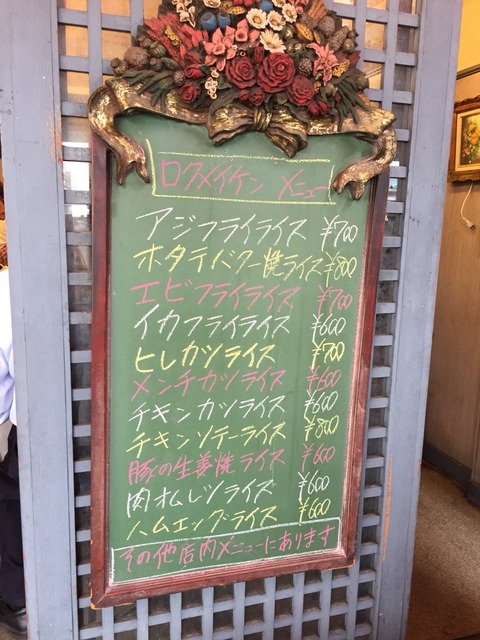 ロクメイケン メニュー
アジフライライス ¥700
ホタテバター焼ライス ¥800
エビフライライス ¥700
イカフライライス ¥600
ヒレカツライス ¥700
メンチカツライス ¥600
チキンカツライス ¥600
チキンソテーライス ¥800
豚の生姜焼ライス ¥600
肉オムレツライス ¥600
ハムエッグライス ¥600
その他店内メニューにあります